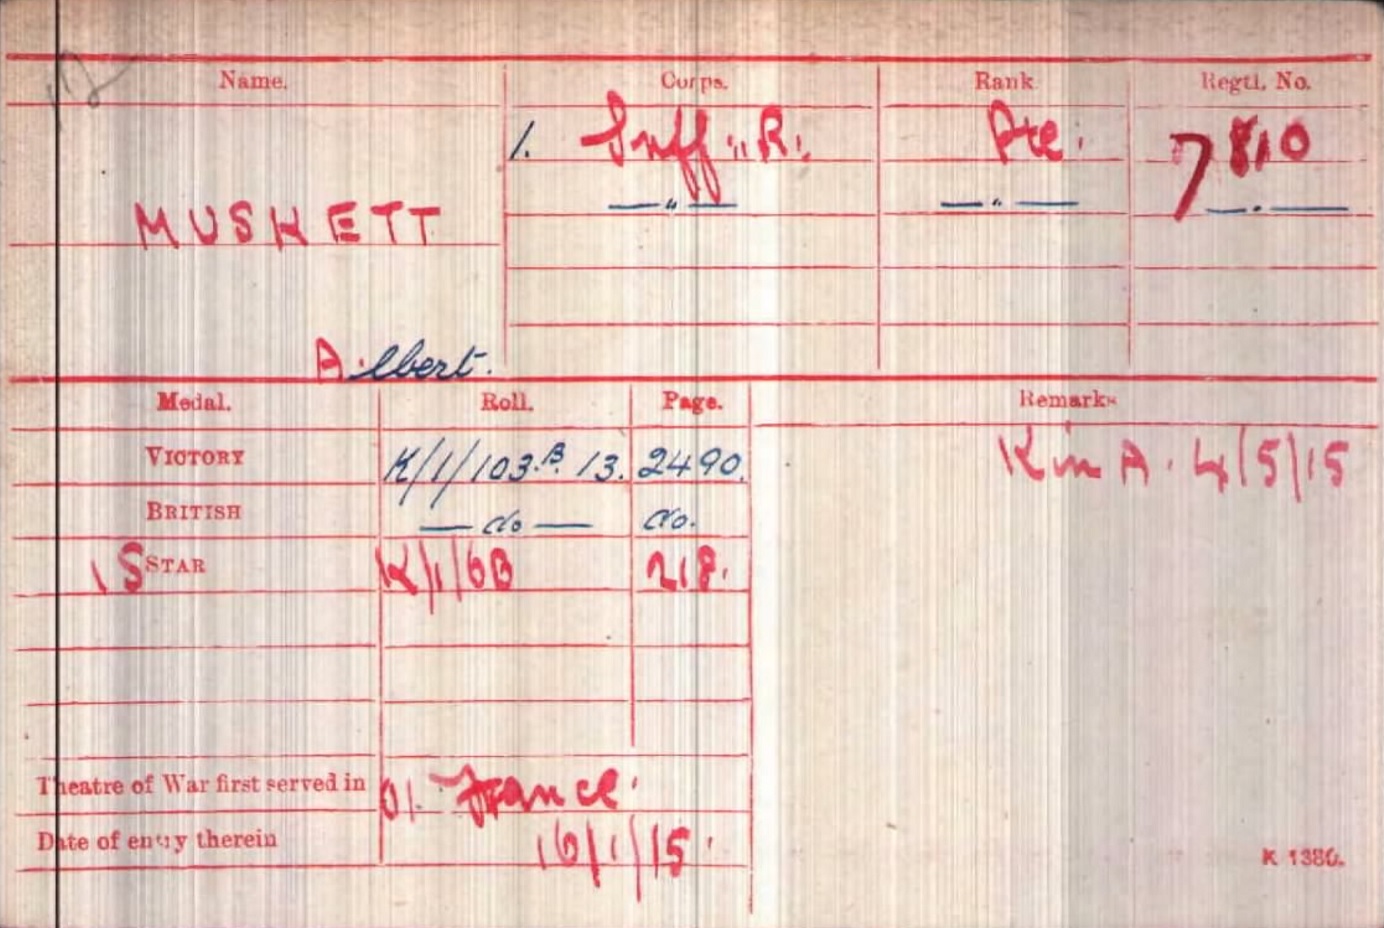 Name. Corps. Rank Regtl. No.
1. Suff. R. Pte. 7810
— " — — " — — . —
MUSKETT
A. lbert.
Medal. Roll. Page. Remarks
VICTORY K/1/103.B. 13. 2490. K in A. 4/5/15
BRITISH — do — do.
15 STAR K/1/6B 218.
Theatre of War first served in 01. France.
Date of entry therein 16/1/15.
K 1380.